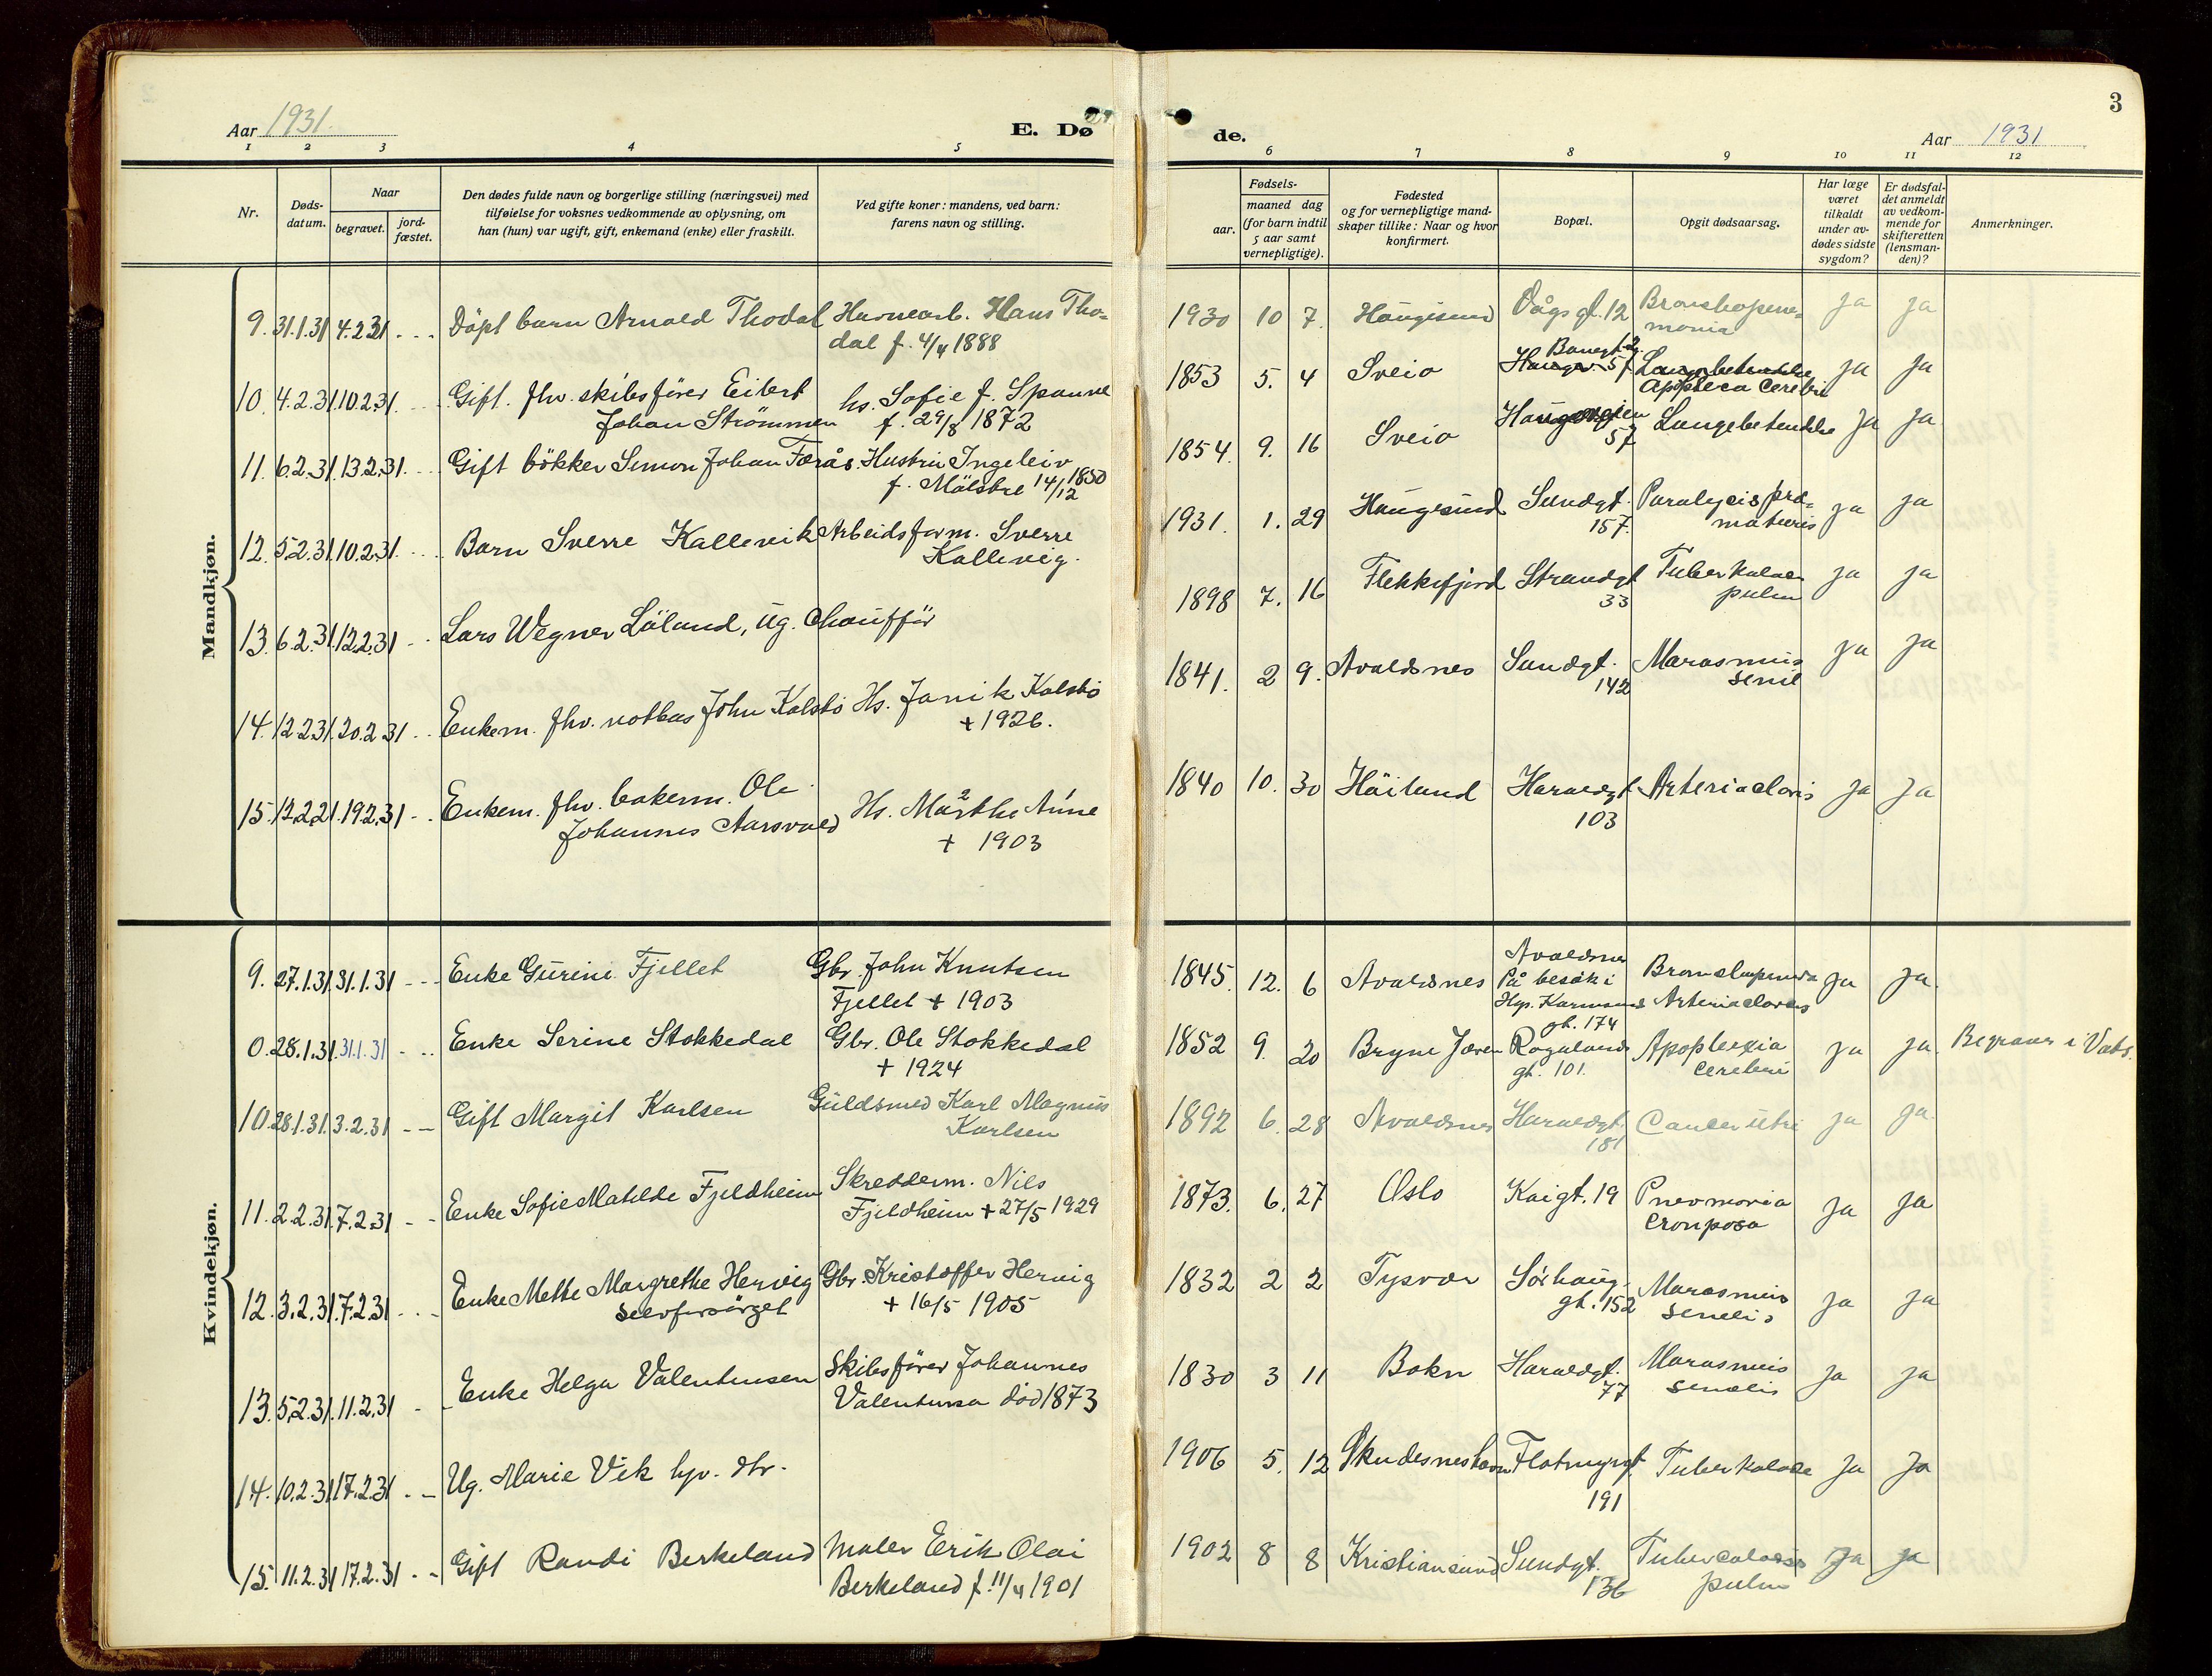 Aar 1931
E. Dø
1 2 3 4 5
Nr.
Døds-
datum.
Naar
begravet.
jord-
fæstet.
Den dødes fulde navn og borgerlige stilling (næringsvei) med
tilføielse for voksnes vedkommende av oplysning, om
han (hun) var ugift, gift, enkemand (enke) eller fraskilt.
Ved gifte koner: mandens, ved barn:
farens navn og stilling.
Mandkjøn.
9. 31.1.31 4.2.31 Döpt barn Arnold Thodal Havnearb. Hans Tho-
dal f. 4/4 1888
10. 4.2.31. 10.2.31. Gift. fhv. skibsfører Eibert hs. Sofie f. Spanne
Johan Strömmen f. 29/8 1872
11. 6.2.31. 13.2.31. Gift bökker Simon Johan Færås. Hustru Ingeleiv
f. Mölstre 14/12 1850
12. 5.2.31. 10.2.31. Barn Sverre Kallevik Arbeidsform. Sverre
Kallevig.
13. 6.2.31. 12.2.31 Lars Wegner Löland, ug. Chaufför
14. 12.2.31. 20.2.31 Enkem. fhv. notbas John Kolstö Hs. Janik Kolstö
+ 1926.
15. 12.2.21. 19.2.31 Enkem. fhv. bakerm. Ole Hs. Marthe Anne
Johannes Aarsvold + 1903
Kvindekjøn.
9. 27.1.31 31.1.31 Enke Gurine Fjellet Gbr. John Knutsen
Fjellet + 1903
0. 28.1.31. 31.1.31 Enke Serine Stokkedal Gbr. Ole Stokkedal
+ 1924
10. 28.1.31. 3.2.31 Gift Margit Karlsen Guldsmed Karl Magnus
Karlsen
11. 2.2.31. 7.2.31 Enke Sofie Matilde Fjeldheim Skredderm. Nils
Fjeldheim + 27/5 1929
12. 3.2.31. 7.2.31 Enke Mette Margrethe Hervig Gbr. Kristoffer Hervig
selvforsörget + 16/5 1905
13. 5.2.31. 11.2.31 Enke Helga Valentinsen Skibsfører Johannes
død 1873
14. 10.2.31. 17.2.31 Ug. Marie Vik hjv. dtr.
15. 11.2.31 17.2.31 Gift Randi Berkeland Maler Erik Olai
Berkeland f. 11/4 1901
3
de.
Aar 1931
6 7 8 9 10 11 12
Fødsels-
aar.
maaned dag
(for barn indtil
5 aar samt
vernepligtige).
Fødested
og for vernepligtige mand-
skaper tillike: Naar og hvor
konfirmert.
Bopæl.
Opgit dødsaarsag.
Har læge
været
tilkaldt
under av-
dødes sidste
sygdom?
Er dødsfal-
det anmeldt
av vedkom-
mende for
skifteretten
(lensman-
den)?
Anmerkninger.
1930 10 7. Haugesund Vågsgt. 12 ja ja
1853 5. 4 Sveio 57 ja ja
1854. 9. 16 Sveio 57 Lungebetendelse ja ja
1931. 1. 29 Haugesund Sundgt. 157. Paralysis præ-
maturis ja ja
1898 7. 16 Flekkefjord Strandgt 33 ja ja
pulm
1841. 2 9. Avaldsnes Sundgt. 142 Marasmus
senil ja ja
1840 10. 30 Höiland Haraldsgt 103 ja ja
1845. 12. 6 Avaldsnes Avaldsnes
På besök i ja ja.
gt. 174
1852 9. 20 Bryne Jæren Rogalands
gt. 101. Apoplexia
cerebri ja ja. Begraves i Vats.
1892 6. 28 Avaldsnes Haraldsgt. 181 Cancer utri ja ja
1873. 6. 27 Oslo Kaigt. 19 Pnevmonia
Crouposa ja ja
1832 2 2 Tysvær Sörhaug-
gt. 152 Marasmus
senelis ja ja
1830 3 11 Bokn Haraldsgt. 77 Marasmus
senelis ja ja
1906 5. 12 Skudeneshavn Flotmyrgt. 191 Tuberkulose ja ja
1902 8 8 Kristiansund Sundgt. 136 Tuberculosis
pulm ja ja